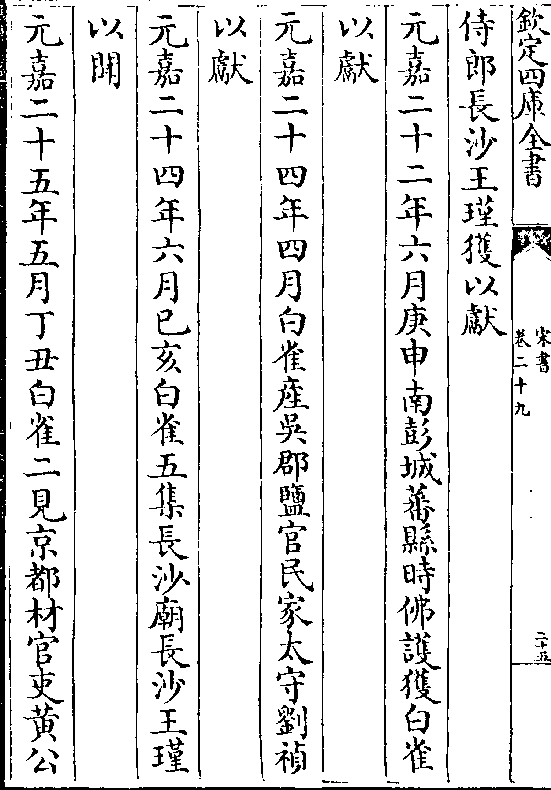 欽定四庫全書
宋書
卷二十九
二十五
侍郎長沙王瑾獲以獻
元嘉二十二年六月庚申南彭城蕃縣時佛護獲白雀
以獻
元嘉二十四年四月白雀産吳郡鹽官民家太守劉禎
以獻
元嘉二十四年六月己亥白雀五集長沙廟長沙王瑾
以聞
元嘉二十五年五月丁丑白雀二見京都材官吏黄公